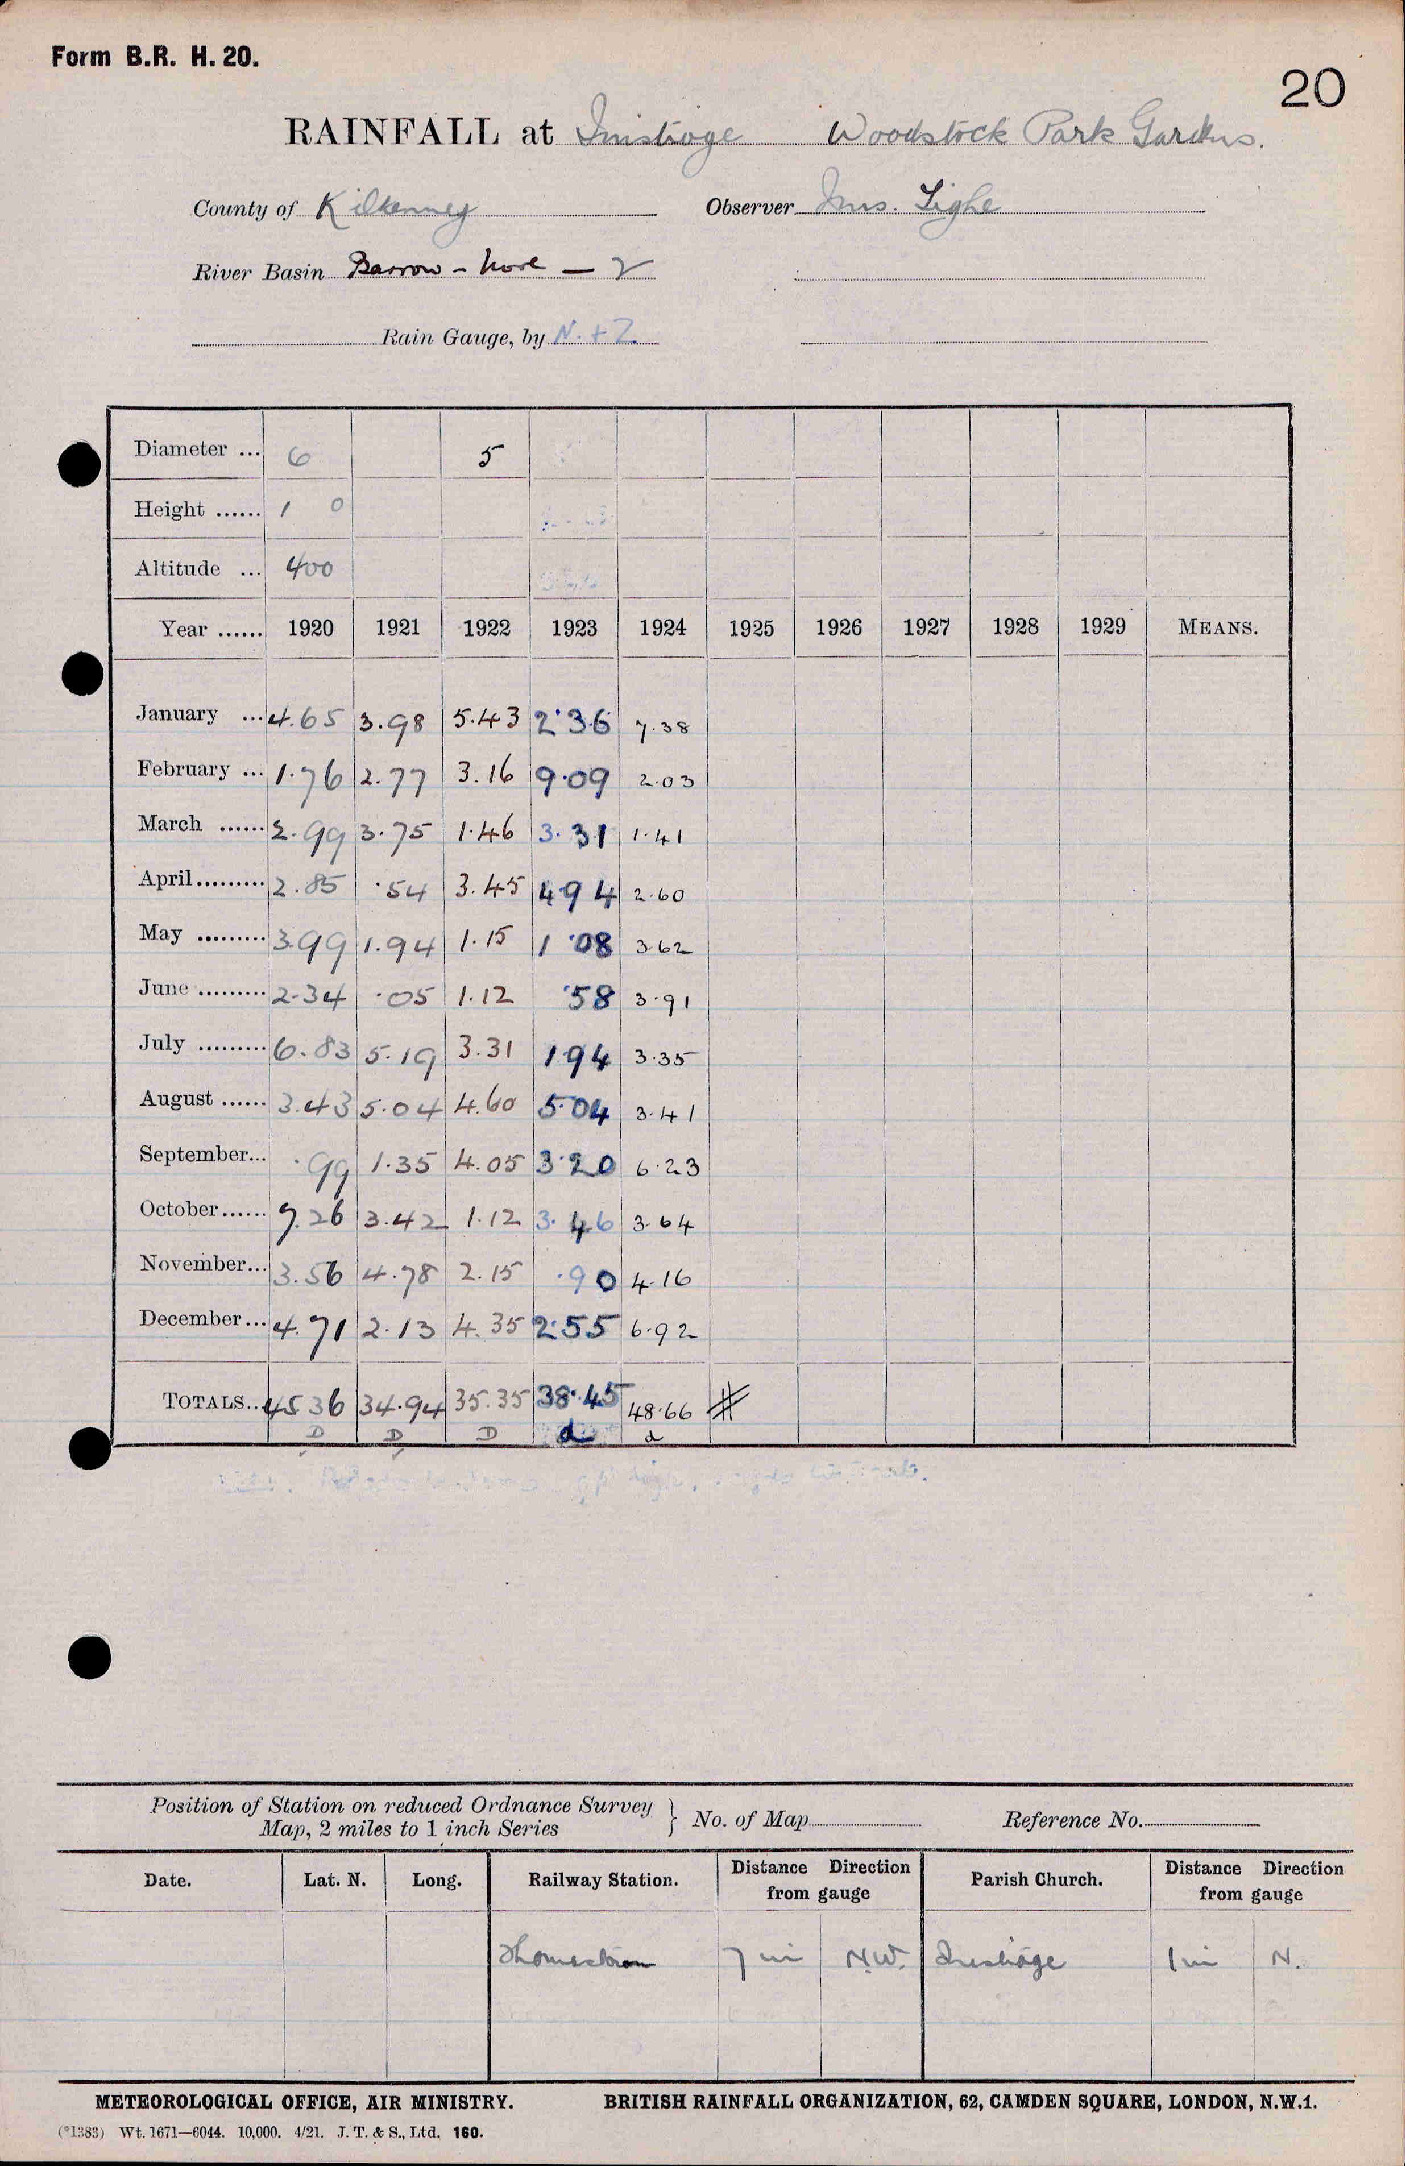 Form B.R. H. 20.
20
RAINFALL at Inistioge Woodstock Park Gardens.
County of Kilkenney Observer Mrs. Tighe
River Basin Barrow - Nore - 2
Rain Gauge, by N. + Z.
Diameter ... 6 5
Height ...... 1 0
Altitude ... 400
Year ...... 1920 1921 1922 1923 1924 1925 1926 1927 1928 1929 MEANS.
January ... 4.65 3.98 5.43 2.36 7.38
February ... 1.76 2.77 3.16 9.09 2.03
March ...... 2.99 3.75 1.46 3.31 1.41
April ......... 2.85 .54 3.45 4.94 2.60
May ......... 3.99 1.94 1.15 1.08 3.62
June ......... 2.34 .05 1.12 .58 3.91
July ......... 6.83 5.19 3.31 1.94 3.35
August ...... 3.43 5.04 4.60 5.04 3.41
September... .99 1.35 4.05 3.20 6.23
October ...... 7.26 3.42 1.12 3.46 3.64
November... 3.56 4.78 2.15 .90 4.16
December ... 4.71 2.13 4.35 2.55 6.92
TOTALS.. 45 36 34.94 35.35 38.45 48.66 #
D D D d d
Position of Station on reduced Ordnance Survey
Map, 2 miles to 1 inch Series } No. of Map Reference No.
Date. Lat. N. Long. Railway Station. Distance Direction from gauge Parish Church. Distance Direction from gauge
Thomastown 7 mi N.W. Inistioge 1 mi N.
METEOROLOGICAL OFFICE, AIR MINISTRY. BRITISH RAINFALL ORGANIZATION, 62, CAMDEN SQUARE, LONDON, N.W.1.
(*1383) Wt. 1671—6044. 10,000. 4/21. J. T. & S., Ltd. 160.